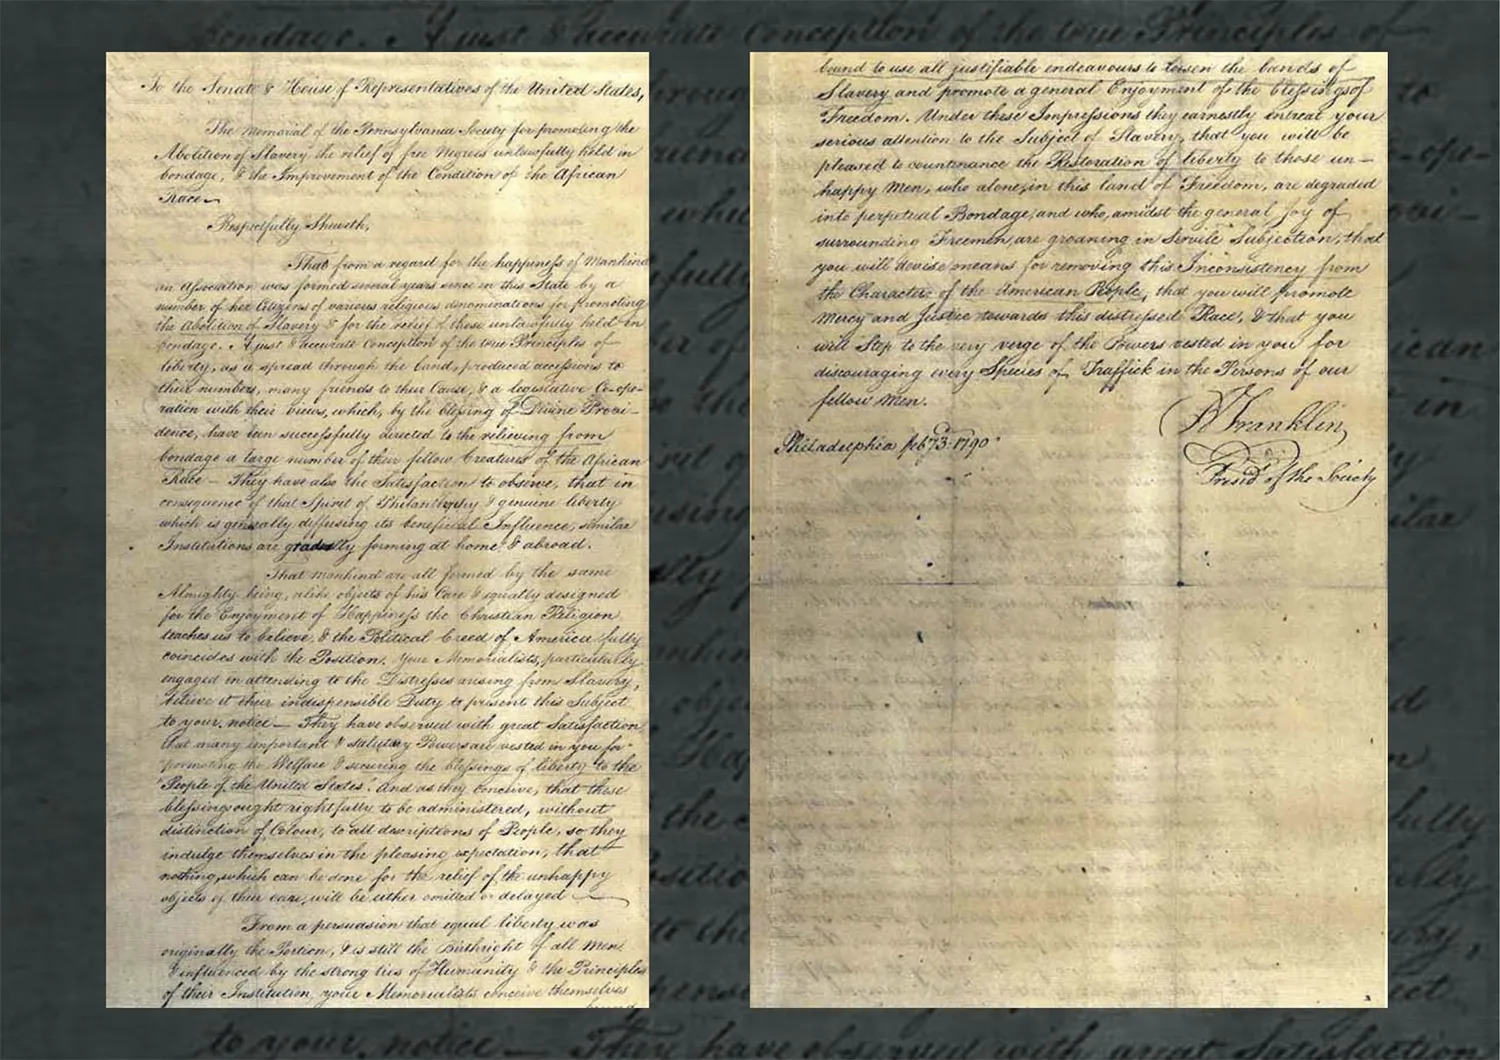 To the Senate & House of Representatives of the United States,
The Memorial of the Pennsylvania Society for promoting the
Abolition of Slavery the relief of free Negroes unlawfully held in
bondage, & the Improvement of the Condition of the African
Race—
Respectfully Sheweth,
That from a regard for the happiness of Mankind
an Association was formed several years since in this State by a
number of her Citizens of various religious denominations for promoting
the Abolition of Slavery & for the relief of those unlawfully held in
bondage. A just & accurate Conception of the true Principles of
liberty, as it spread through the land, produced accessions to
their numbers, many friends to their Cause, & a legislative Co-ope-
ration with their views, which, by the blessing of Divine Provi-
dence, have been successfully directed to the relieving from
bondage a large number of their fellow Creatures of the African
Race— They have also the Satisfaction to observe, that in
consequence of that Spirit of Philanthropy & genuine liberty
which is generally diffusing its beneficial Influence, similar
Institutions are gradually forming at home & abroad.
That mankind are all formed by the same
Almighty being, alike objects of his Care & equally designed
for the Enjoyment of Happiness the Christian Religion
teaches us to believe, & the Political Creed of America fully
coincides with the Position. Your Memorialists, particularly
engaged in attending to the Distresses arising from Slavery,
believe it their indispensible Duty to present this Subject
to your notice— They have observed with great Satisfaction
that many important & salutary Powers are vested in you for
"promoting the Welfare & securing the blessings of liberty to the
"People of the United States." And as they conceive, that these
blessings ought rightfully to be administered, without
distinction of Colour, to all descriptions of People, so they
indulge themselves in the pleasing expectation, that
nothing, which can be done for the relief of the unhappy
objects of their care, will be either omitted or delayed—
From a persuasion that equal liberty was
originally the Portion, & is still the Birthright of all Men
& influenced by the strong ties of Humanity & the Principles
of their Institution, your Memorialists conceive themselves
bound to use all justifiable endeavours to loosen the bands of
Slavery and promote a general Enjoyment of the blessings of
Freedom. Under these Impressions they earnestly entreat your
serious attention to the Subject of Slavery, that you will be
pleased to countenance the Restoration of liberty to those un-
happy Men, who alone, in this land of Freedom, are degraded
into perpetual Bondage, and who, amidst the general Joy of
surrounding Freemen, are groaning in Servile Subjection, that
you will devise means for removing this Inconsistency from
the Character of the American People, that you will promote
Mercy and Justice towards this distressed Race, & that you
will Step to the very verge of the Powers vested in you for
discouraging every Species of Traffick in the Persons of our
fellow Men.
B Franklin
Presidt. of the Society
Philadelphia feby 3. 1790